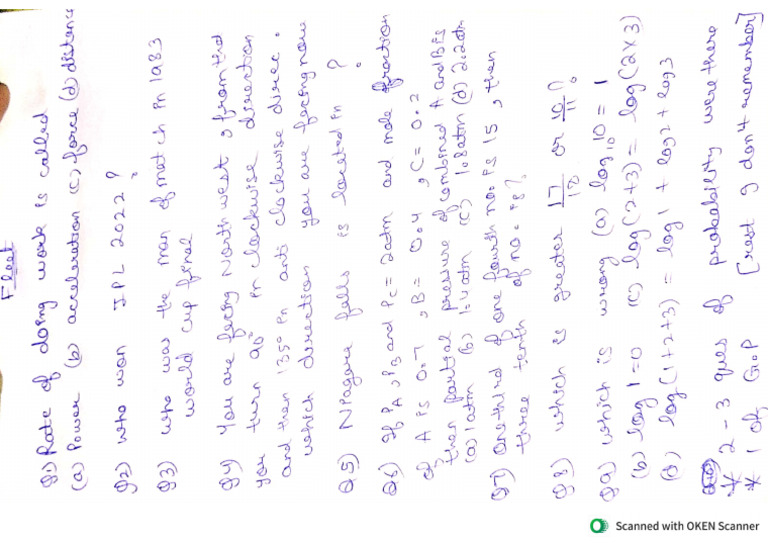 Fleet
Q1) Rate of doing work is called
(a) Power (b) acceleration (c) force (d) distance
Q2) who won IPL 2022?
Q3) who was the man of match in 1983
world cup final ?
Q4) You are facing Northwest, from tird
you turn 90° in clockwise direction
and then 135° in anti clockwise direc.
which direction you are facing now
Q5) Niagara falls is located in ?
Q6) If PA, PB and PC = 2atm and mole fraction
of A is 0.7, B = 0.4, C = 0.2
then partial pressure of combined A and B is
(a) 1atm (b) 1.4atm (c) 1.8atm (d) 2.2atm
Q7) One third of one fourth no. is 15, then
three tenth of no. is?
Q8) which is greater 17/18 or 10/11?
Q9) which is wrong (a) log₁₀ 10 = 1
(b) log 1 = 0 (c) log(2+3) = log(2x3)
(d) log(1+2+3) = log 1 + log 2 + log 3
* 2-3 ques of probability were there
* 1 of G.P [rest I don't remember]
Scanned with OKEN Scanner